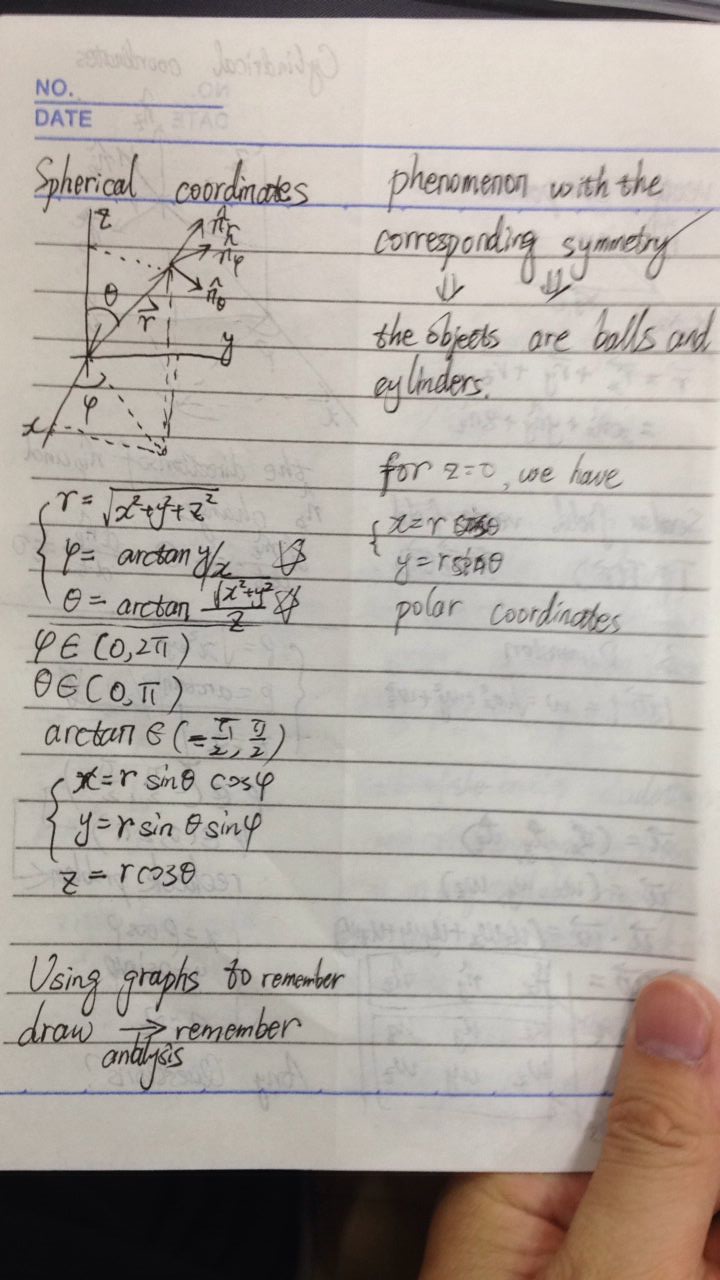 NO.
DATE
Spherical coordinates
z
n̂r
n̂φ
n̂θ
θ
r⃗
y
φ
x
r = √x²+y²+z²
φ = arctan y/x
θ = arctan √x²+y²/z
φ ∈ (0, 2π)
θ ∈ (0, π)
arctan ∈ (-π/2, π/2)
x = r sinθ cosφ
y = r sin θ sinφ
z = r cosθ
Using graphs to remember
draw → remember
analysis
phenomenon with the
corresponding symmetry
⇓ ⇓
the objects are balls and
cylinders.
for z=0, we have
x = r cosθ
y = r sinθ
polar coordinates